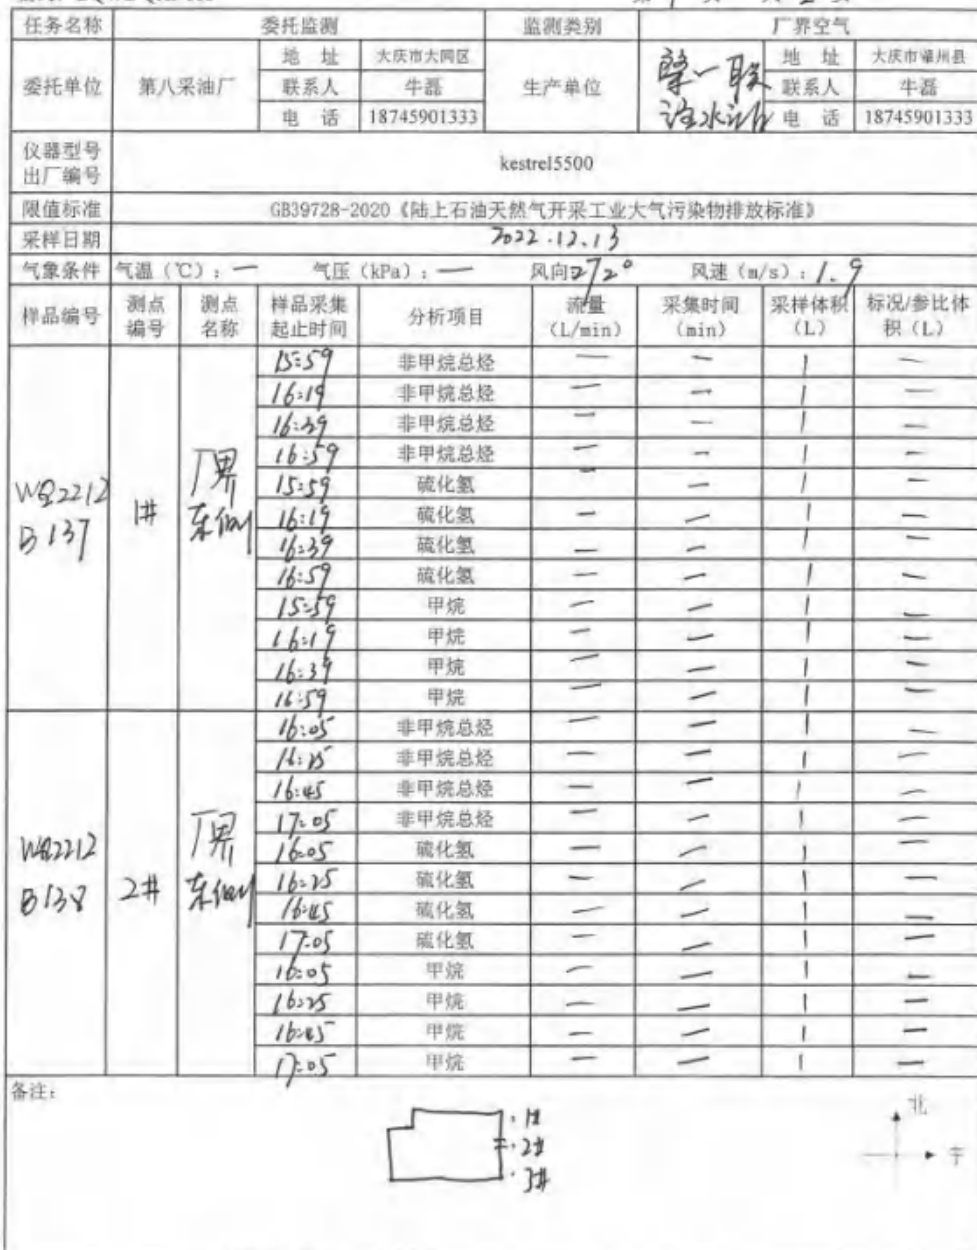 任务名称 委托监测 监测类别 厂界空气
委托单位 第八采油厂 地 址 大庆市大同区 生产单位 肇一联注水站 地 址 大庆市肇州县
联系人 牛磊 联系人 牛磊
电 话 18745901333 电 话 18745901333
仪器型号
出厂编号 kestrel5500
限值标准 GB39728-2020《陆上石油天然气开采工业大气污染物排放标准》
采样日期 2022.12.13
气象条件 气温（℃）：— 气压（kPa）：— 风向272° 风速（m/s）：1.9
样品编号 测点编号 测点名称 样品采集起止时间 分析项目 流量（L/min） 采集时间（min） 采样体积（L） 标况/参比体积（L）
WQ2212B137 1# 厂界东侧
15:59 非甲烷总烃 — — 1 —
16:19 非甲烷总烃 — — 1 —
16:39 非甲烷总烃 — — 1 —
16:59 非甲烷总烃 — — 1 —
15:59 硫化氢 — — 1 —
16:19 硫化氢 — — 1 —
16:39 硫化氢 — — 1 —
16:59 硫化氢 — — 1 —
15:59 甲烷 — — 1 —
16:19 甲烷 — — 1 —
16:39 甲烷 — — 1 —
16:59 甲烷 — — 1 —
WQ2212B138 2# 厂界东侧
16:05 非甲烷总烃 — — 1 —
16:25 非甲烷总烃 — — 1 —
16:45 非甲烷总烃 — — 1 —
17:05 非甲烷总烃 — — 1 —
16:05 硫化氢 — — 1 —
16:25 硫化氢 — — 1 —
16:45 硫化氢 — — 1 —
17:05 硫化氢 — — 1 —
16:05 甲烷 — — 1 —
16:25 甲烷 — — 1 —
16:45 甲烷 — — 1 —
17:05 甲烷 — — 1 —
备注：
1#
2#
3#
北